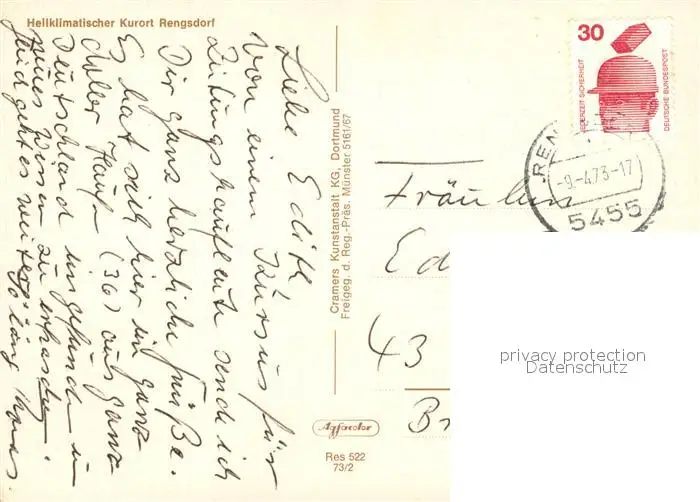 Heilklimatischer Kurort Rengsdorf
Liebe Edith
Von einem Kursus für
Zeitungskaufleute sende ich
Dir ganz herzliche Grüße.
Es hat sich hier ein ganz
toller Haufen (36) aus ganz
Deutschland eingefunden um
neues Wissen zu erhaschen.
geht es weiter
Cramers Kunstanstalt KG, Dortmund
Freigeg. d. Reg.-Präs. Münster 5161/67
Agfacolor
Res 522
73/2
30
JEDERZEIT SICHERHEIT
DEUTSCHE BUNDESPOST
REN
-9.-4.73-17
5455
Fräulein
Ed
43
privacy protection
Datenschutz